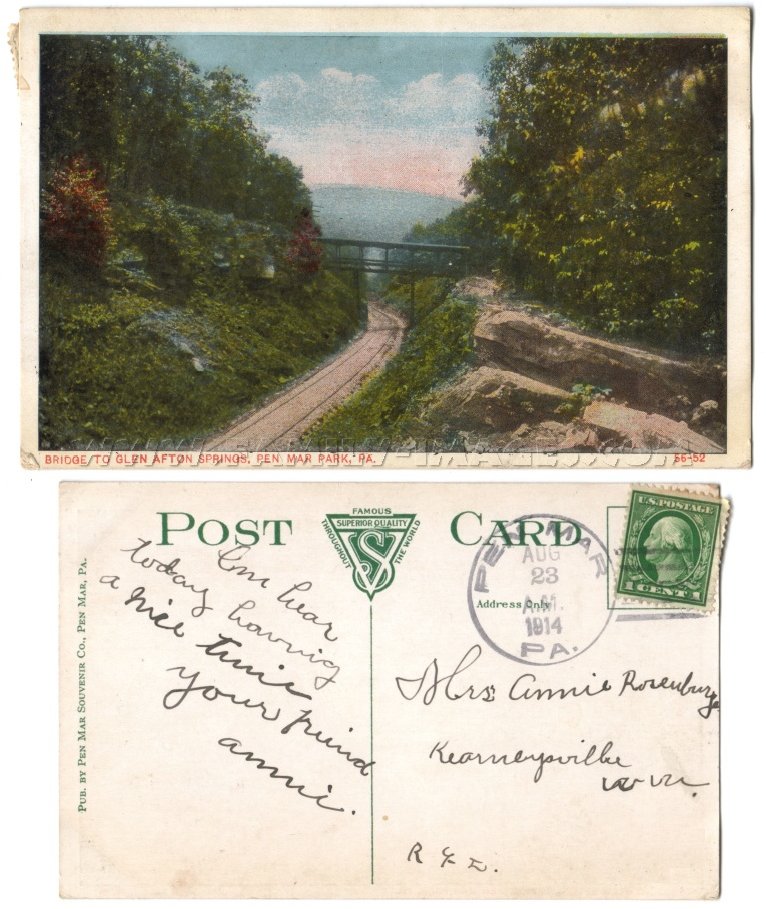 WWW.FAMILY-IMAGES.COM
BRIDGE TO GLEN AFTON SPRINGS, PEN MAR PARK, PA.
56-52
POST CARD
FAMOUS
SUPERIOR QUALITY
THROUGHOUT THE WORLD
Address Only
PEN MAR
AUG
23
A.M.
1914
PA.
U.S. POSTAGE
1 CENT 1
PUB. BY PEN MAR SOUVENIR CO., PEN MAR, PA.
hear
today having
a nice time
your friend
annie.
Mrs Annie Rosenburge
Kearneysville
W Va.
R F D.